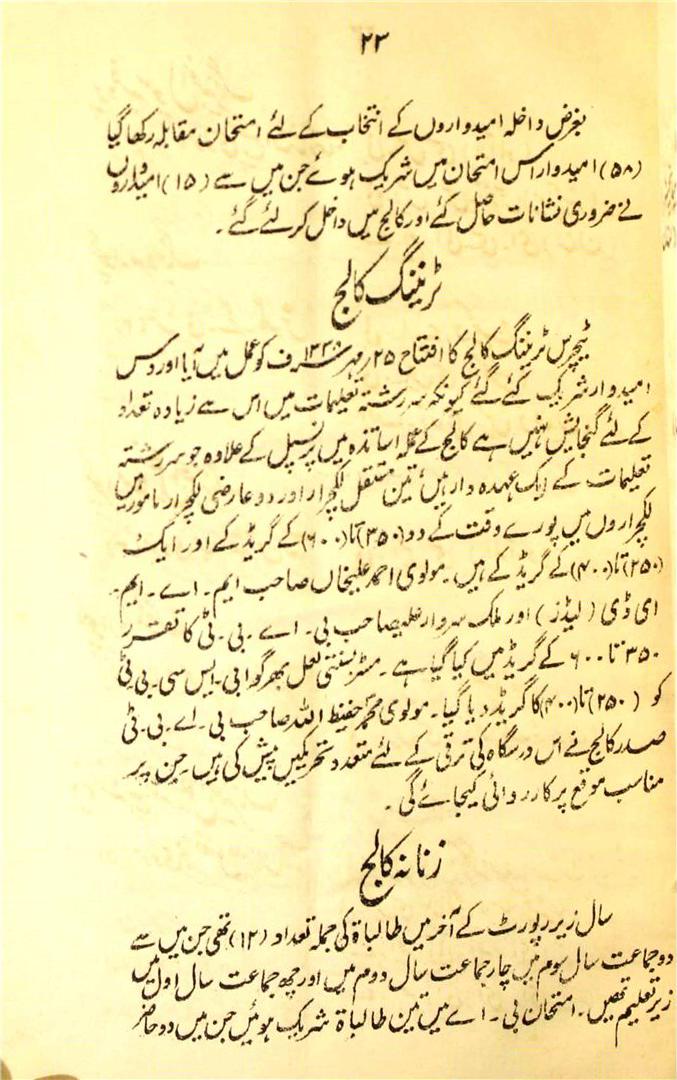 ۲۳
بغرض داخلہ امیدواروں کے انتخاب کے لئے امتحان مقابلہ رکھا گیا
(۵۸) امیدوار اس امتحان میں شریک ہوئے جن میں سے (۱۵) امیدواروں
نے ضروری نشانات حاصل کئے اور کالج میں داخل کر لئے گئے۔
ٹریننگ کالج
ٹیچرس ٹریننگ کالج کا افتتاح ۲۵ مہر ف کو عمل میں آیا اور دس
امیدوار شریک کئے گئے کیونکہ سررشتہ تعلیمات میں اس سے زیادہ تعداد
کے لئے گنجایش نہیں ہے کالج کے عملہ اساتذہ میں پرنسپل کے علاوہ جو سررشتہ
تعلیمات کے ایک عہدہ دار ہیں، تین مستقل لکچرار اور دو عارضی لکچرار مامور ہیں
لکچراروں میں پورے وقت کے دو (۳۵۰) تا (۶۰۰) کے گریڈ کے اور ایک
(۲۵۰) تا (۴۰۰) کے گریڈ کے ہیں۔ مولوی احمد علیخاں صاحب ایم۔ اے۔ ایم۔
ای ڈی (لیڈز) اور ملک سردار علیصاحب بی۔ اے۔ بی۔ ٹی کا تقرر
۳۵۰ تا ۶۰۰ کے گریڈ میں کیا گیا ہے۔ مسٹر بسنتی لعل بھرگوا بی۔ ایس سی۔ بی۔ ٹی
کو (۲۵۰) تا (۴۰۰) کا گریڈ دیا گیا۔ مولوی محمد حفیظ اللہ صاحب بی۔ اے۔ بی۔ ٹی
صدر کالج نے اس درسگاہ کی ترقی کے لئے متعدد تحریکیں پیش کی ہیں جن پر
مناسب موقع پر کارروائی کیجائے گی۔
زنانہ کالج
سال زیر رپورٹ کے آخر میں طالباۃ کی جملہ تعداد (۱۲) تھی جن میں سے
دو جماعت سال سوم میں چار جماعت سال دوم میں اور چھ جماعت سال اول میں
زیر تعلیم تھیں۔ امتحان بی۔ اے میں تین طالباۃ شریک ہوئیں جن میں دو حاضر